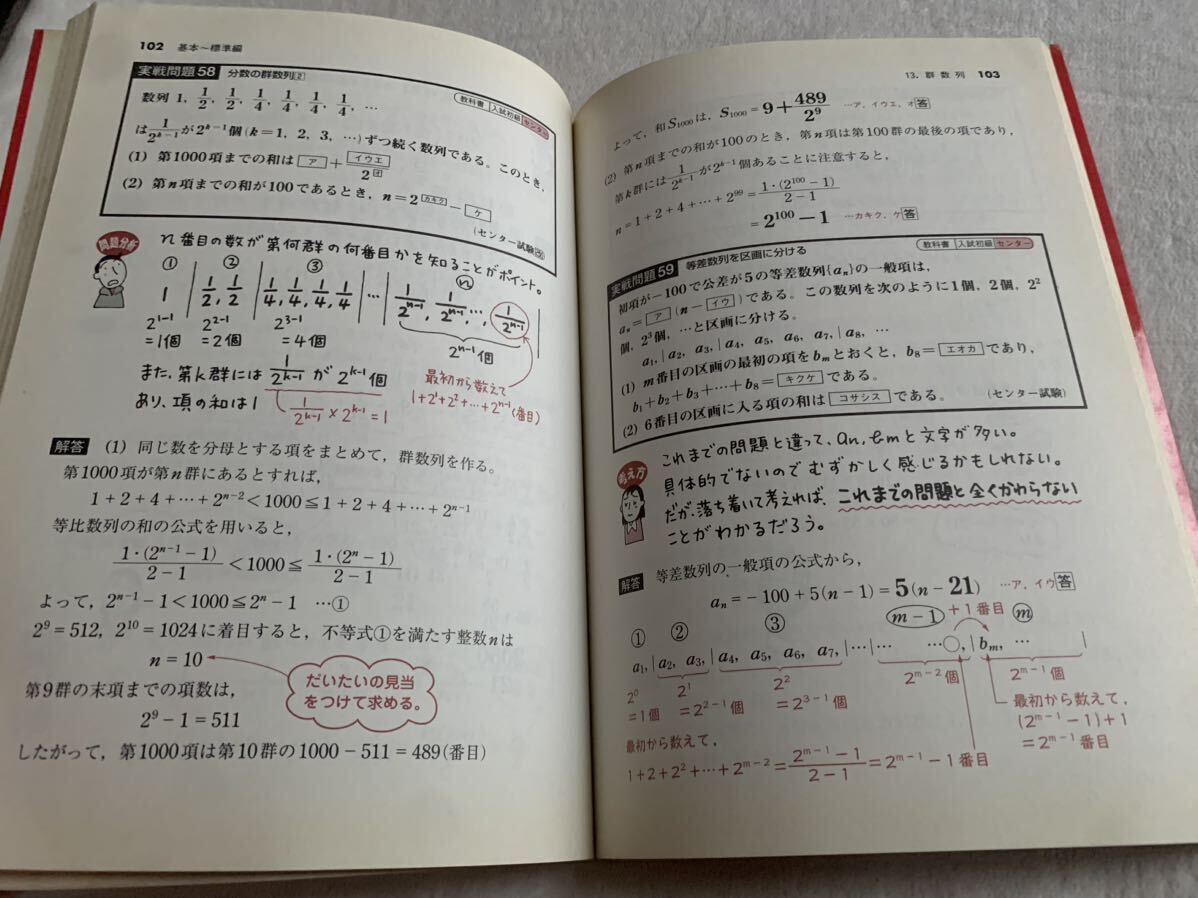 102 基本〜標準編
実戦問題58 分数の群数列②
教科書 入試初級 センター
数列 1, 1/2, 1/2, 1/4, 1/4, 1/4, 1/4, …
は 1/2^{k-1} が 2^{k-1} 個 (k=1, 2, 3, …) ずつ続く数列である。このとき,
(1) 第1000項までの和は ア + イウエ/2^オ
(2) 第n項までの和が100であるとき, n=2^{カキク} − ケ
(センター試験)
問題分析
n番目の数が第何群の何番目かを知ることがポイント。
① ② ③ ⓝ
1 | 1/2, 1/2 | 1/4, 1/4, 1/4, 1/4 | … | 1/2^{n-1}, 1/2^{n-1}, …, 1/2^{n-1} |
2^{1-1} 2^{2-1} 2^{3-1} 2^{n-1}個
=1個 =2個 =4個
また, 第k群には 1/2^{k-1} が 2^{k-1}個
あり, 項の和は1
1/2^{k-1} × 2^{k-1} = 1
最初から数えて
1+2^1+2^2+…+2^{n-1}(番目)
解答 (1) 同じ数を分母とする項をまとめて, 群数列を作る。
第1000項が第n群にあるとすれば,
1+2+4+…+2^{n-2}<1000≦1+2+4+…+2^{n-1}
等比数列の和の公式を用いると,
1·(2^{n-1}−1)/(2−1) <1000≦ 1·(2^n−1)/(2−1)
よって, 2^{n-1}−1<1000≦2^n−1 …①
2^9=512, 2^{10}=1024に着目すると, 不等式①を満たす整数nは
n=10
だいたいの見当
をつけて求める。
第9群の末項までの項数は,
2^9−1=511
したがって, 第1000項は第10群の1000−511=489(番目)
13. 群数列 103
よって, 和S_{1000}は, S_{1000}=9+489/2^9 …ア, イウエ, オ 答
(2) 第n項までの和が100のとき, 第n項は第100群の最後の項であり,
第k群には 1/2^{k-1} が 2^{k-1} 個あることに注意すると,
n=1+2+4+…+2^{99}= 1·(2^{100}−1)/(2−1)
=2^{100}−1 …カキク, ケ 答
実戦問題59 等差数列を区画に分ける
教科書 入試初級 センター
初項が−100で公差が5の等差数列{a_n}の一般項は,
a_n= ア (n− イウ )である。この数列を次のように1個, 2個, 2^2
個, 2^3個, …と区画に分ける。
a_1, | a_2, a_3, | a_4, a_5, a_6, a_7, | a_8, …
(1) m番目の区画の最初の項をb_mとおくと, b_8= エオカ であり,
b_1+b_2+b_3+…+b_8= キクケ である。
(2) 6番目の区画に入る項の和は コサシス である。
(センター試験)
考え方
これまでの問題と違って, an, bmと文字が多い。
具体的でないのでむずかしく感じるかもしれない。
だが, 落ち着いて考えれば, これまでの問題と全くかわらない
ことがわかるだろう。
解答 等差数列の一般項の公式から,
a_n=−100+5(n−1)=5(n−21) …ア, イウ 答
① ② ③ m−1 +1番目 ⓜ
a_1, | a_2, a_3, | a_4, a_5, a_6, a_7, | … | … …○, | b_m, … |
2^0 2^1 2^2 2^{m-2}個 2^{m-1}個
=1個 =2^{2-1}個 =2^{3-1}個
最初から数えて,
(2^{m-1}−1)+1
=2^{m-1}番目
最初から数えて,
1+2+2^2+…+2^{m-2}= (2^{m-1}−1)/(2−1) =2^{m-1}−1番目